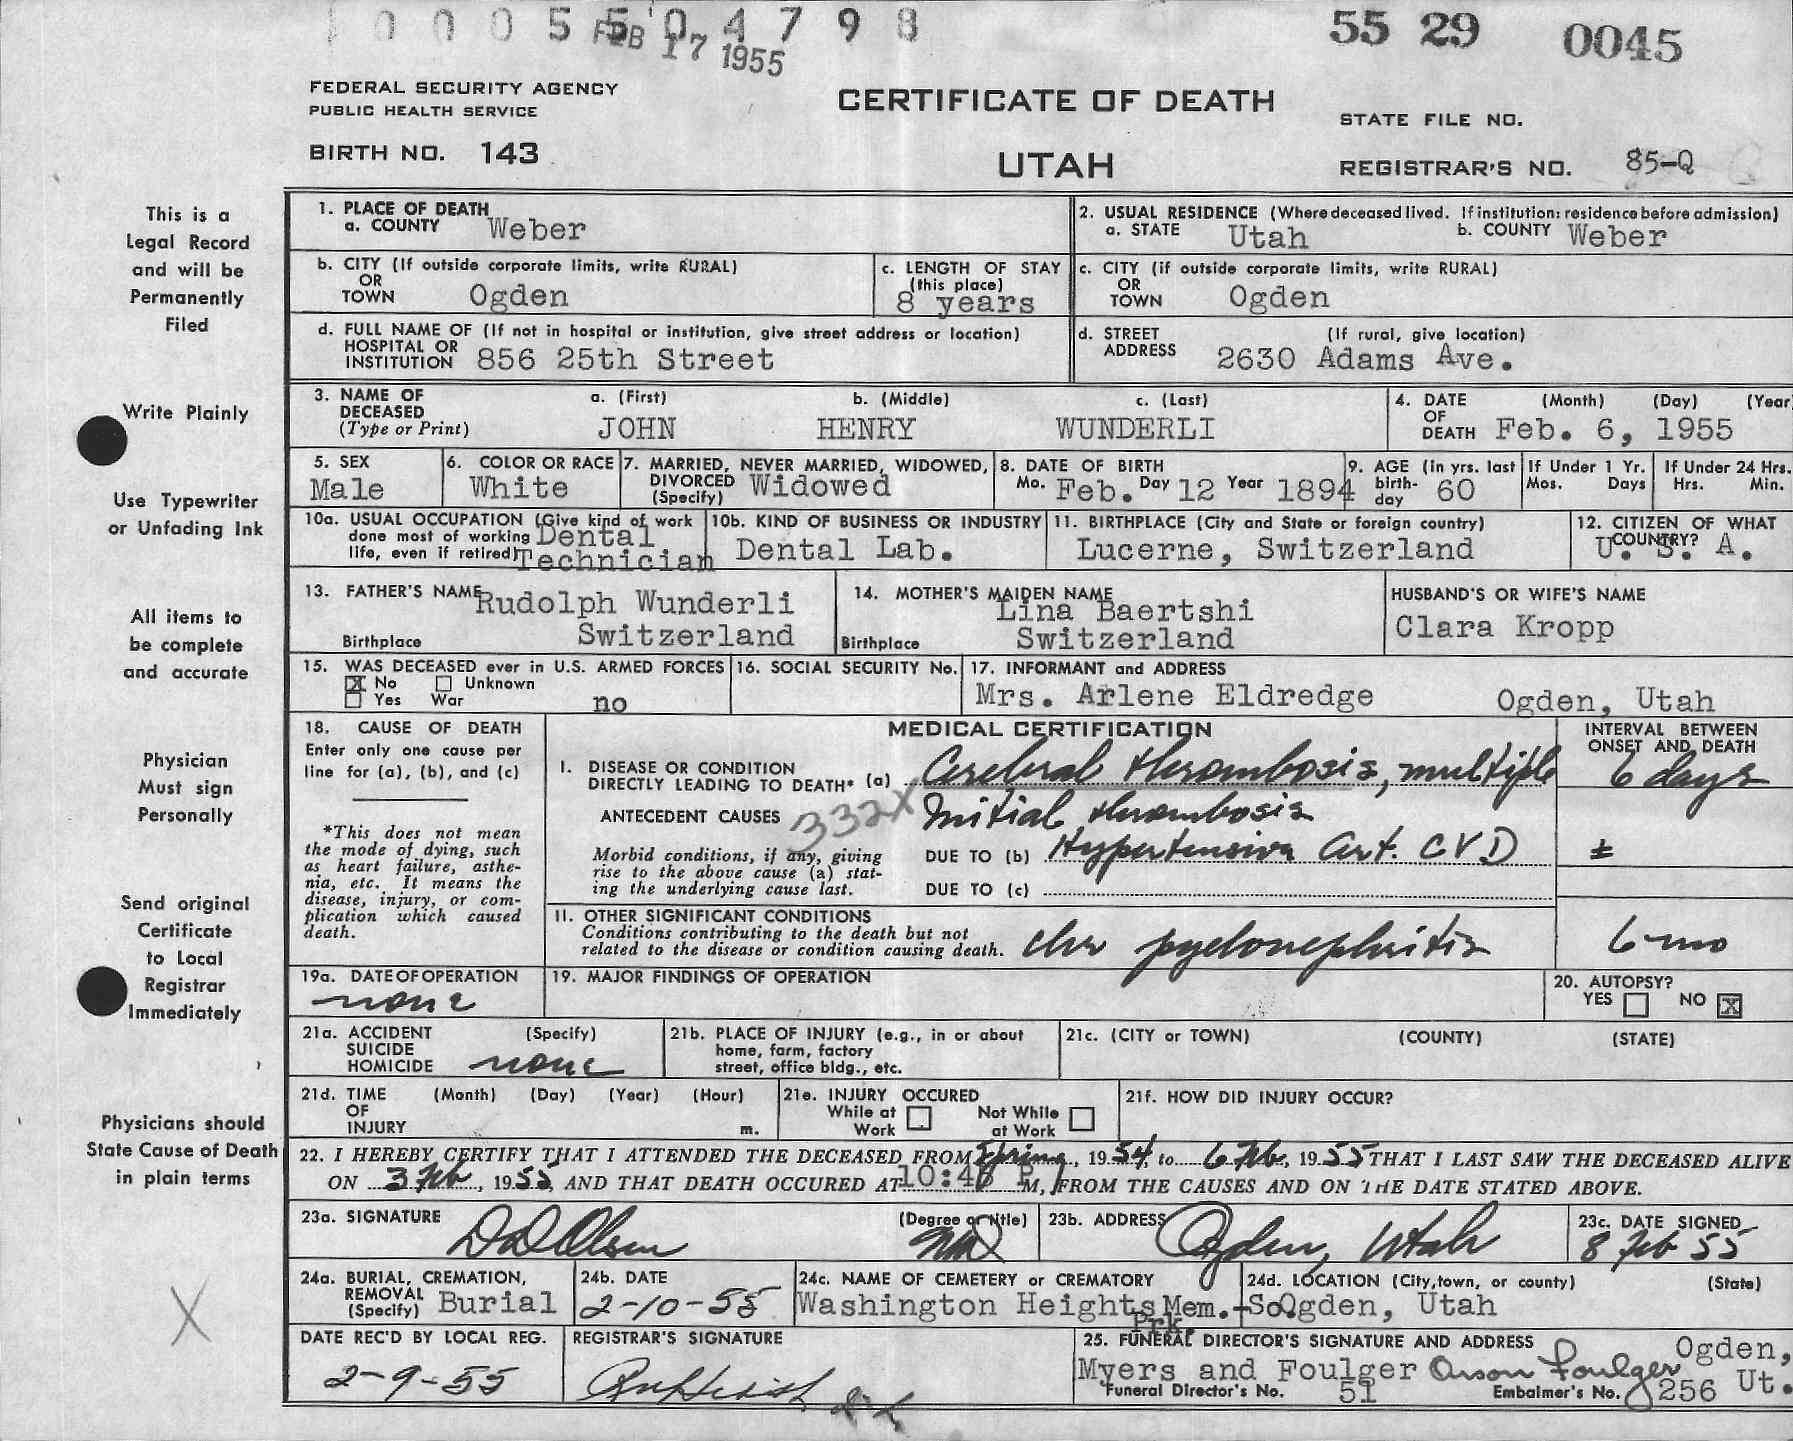 1 0 0 0 5 5 0 4 7 9 8
FEB 17 1955
55 29 0045
FEDERAL SECURITY AGENCY
PUBLIC HEALTH SERVICE
CERTIFICATE OF DEATH
STATE FILE NO.
BIRTH NO. 143
UTAH
REGISTRAR'S NO. 85-Q
This is a
Legal Record
and will be
Permanently
Filed
Write Plainly
Use Typewriter
or Unfading Ink
All items to
be complete
and accurate
Physician
Must sign
Personally
Send original
Certificate
to Local
Registrar
Immediately
Physicians should
State Cause of Death
in plain terms
X
1. PLACE OF DEATH
a. COUNTY Weber
2. USUAL RESIDENCE (Where deceased lived. If institution: residence before admission)
a. STATE Utah b. COUNTY Weber
b. CITY (If outside corporate limits, write RURAL)
OR
TOWN Ogden
c. LENGTH OF STAY
(this place)
8 years
c. CITY (if outside corporate limits, write RURAL)
OR
TOWN Ogden
d. FULL NAME OF (If not in hospital or institution, give street address or location)
HOSPITAL OR
INSTITUTION 856 25th Street
d. STREET (If rural, give location)
ADDRESS 2630 Adams Ave.
3. NAME OF
DECEASED
(Type or Print)
a. (First) b. (Middle) c. (Last)
JOHN HENRY WUNDERLI
4. DATE (Month) (Day) (Year
OF
DEATH Feb. 6, 1955
5. SEX
Male
6. COLOR OR RACE
White
7. MARRIED, NEVER MARRIED, WIDOWED,
DIVORCED
(Specify) Widowed
8. DATE OF BIRTH
Mo. Feb. Day 12 Year 1894
9. AGE (in yrs. last
birth-
day 60
If Under 1 Yr.
Mos. Days
If Under 24 Hrs.
Hrs. Min.
10a. USUAL OCCUPATION (Give kind of work
done most of working
life, even if retired) Dental
Technician
10b. KIND OF BUSINESS OR INDUSTRY
Dental Lab.
11. BIRTHPLACE (City and State or foreign country)
Lucerne, Switzerland
12. CITIZEN OF WHAT
COUNTRY?
U. S. A.
13. FATHER'S NAME Rudolph Wunderli
Birthplace Switzerland
14. MOTHER'S MAIDEN NAME
Lina Baertshi
Birthplace Switzerland
HUSBAND'S OR WIFE'S NAME
Clara Kropp
15. WAS DECEASED ever in U.S. ARMED FORCES
X No Unknown
Yes War no
16. SOCIAL SECURITY No.
17. INFORMANT and ADDRESS
Mrs. Arlene Eldredge Ogden, Utah
18. CAUSE OF DEATH
Enter only one cause per
line for (a), (b), and (c)
*This does not mean
the mode of dying, such
as heart failure, asthe-
nia, etc. It means the
disease, injury, or com-
plication which caused
death.
MEDICAL CERTIFICATION
INTERVAL BETWEEN
ONSET AND DEATH
I. DISEASE OR CONDITION
DIRECTLY LEADING TO DEATH* (a) Cerebral thrombosis, multiple 6 days
ANTECEDENT CAUSES 332X Initial thrombosis
Morbid conditions, if any, giving
rise to the above cause (a) stat-
ing the underlying cause last.
DUE TO (b) Hypertensive Art. CVD ±
DUE TO (c)
II. OTHER SIGNIFICANT CONDITIONS
Conditions contributing to the death but not
related to the disease or condition causing death. chr pyelonephritis 6 mo
19a. DATE OF OPERATION
none
19. MAJOR FINDINGS OF OPERATION
20. AUTOPSY?
YES NO X
21a. ACCIDENT (Specify)
SUICIDE
HOMICIDE none
21b. PLACE OF INJURY (e.g., in or about
home, farm, factory
street, office bldg., etc.
21c. (CITY or TOWN) (COUNTY) (STATE)
21d. TIME (Month) (Day) (Year) (Hour)
OF
INJURY m.
21e. INJURY OCCURED
While at Work Not While at Work
21f. HOW DID INJURY OCCUR?
22. I HEREBY CERTIFY THAT I ATTENDED THE DECEASED FROM Spring, 1954, to 6 Feb, 1955 THAT I LAST SAW THE DECEASED ALIVE
ON 3 Feb, 1955, AND THAT DEATH OCCURED AT 10:45 P M, FROM THE CAUSES AND ON THE DATE STATED ABOVE.
23a. SIGNATURE (Degree or title)
Olsen MD
23b. ADDRESS
Ogden, Utah
23c. DATE SIGNED
8 Feb 55
24a. BURIAL, CREMATION,
REMOVAL
(Specify) Burial
24b. DATE
2-10-55
24c. NAME OF CEMETERY or CREMATORY
Washington Heights Mem.
Prk.
24d. LOCATION (City, town, or county) (State)
So Ogden, Utah
DATE REC'D BY LOCAL REG.
2-9-55
REGISTRAR'S SIGNATURE
25. FUNERAL DIRECTOR'S SIGNATURE AND ADDRESS
Myers and Foulger Orson Foulger Ogden,
Ut.
Funeral Director's No. 51 Embalmer's No. 256